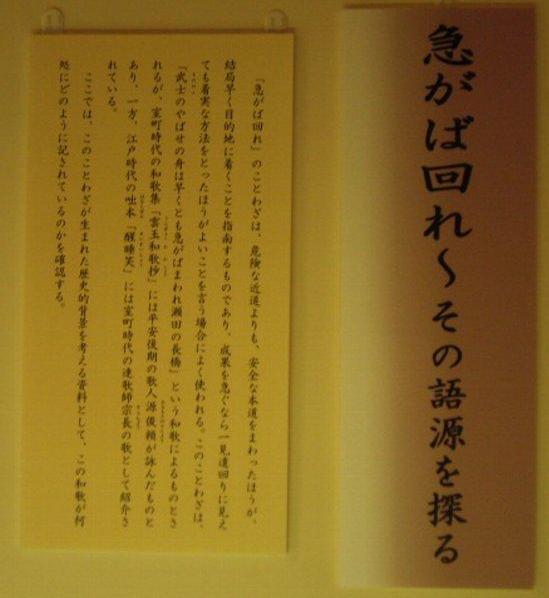 急がば回れ～その語源を探る
「急がば回れ」のことわざは、危険な近道よりも、安全な本道をまわったほうが、
結局早く目的地に着くことを指南するものであり、成果を急ぐなら一見遠回りに見え
ても着実な方法をとったほうがよいことを言う場合によく使われる。このことわざは、
「武士のやばせの舟は早くとも急がばまわれ瀬田の長橋」という和歌によるものとさ
れるが、室町時代の和歌集「雲玉和歌抄」には平安後期の歌人源俊頼が詠んだものと
あり、一方、江戸時代の咄本「醒睡笑」には室町時代の連歌師宗長の歌として紹介さ
れている。
ここでは、このことわざが生まれた歴史的背景を考える資料として、この和歌が何
処にどのように記されているのかを確認する。